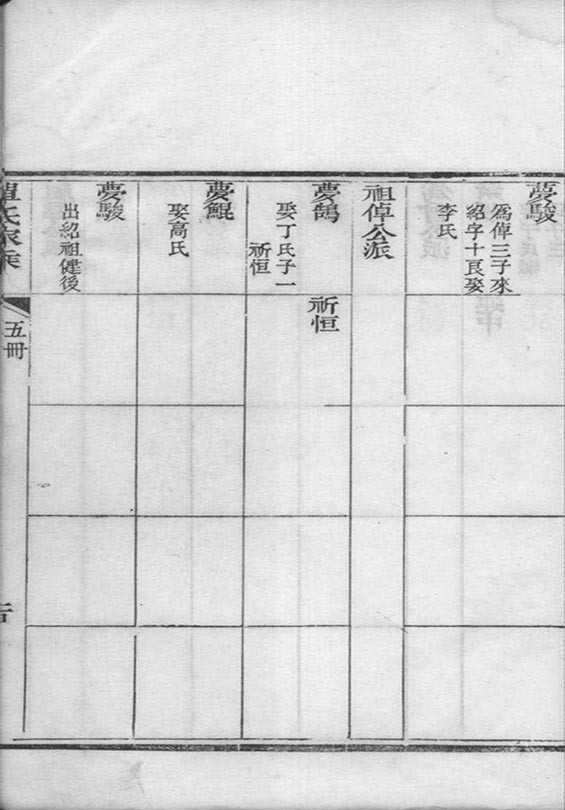 夢駿
爲倬三子來
紹字十良娶
李氏
祖倬公派
夢鵠
娶丁氏子一
祈恒
祈恒
夢鯤
娶高氏
夢駿
出紹祖健後
氏家乘
五冊